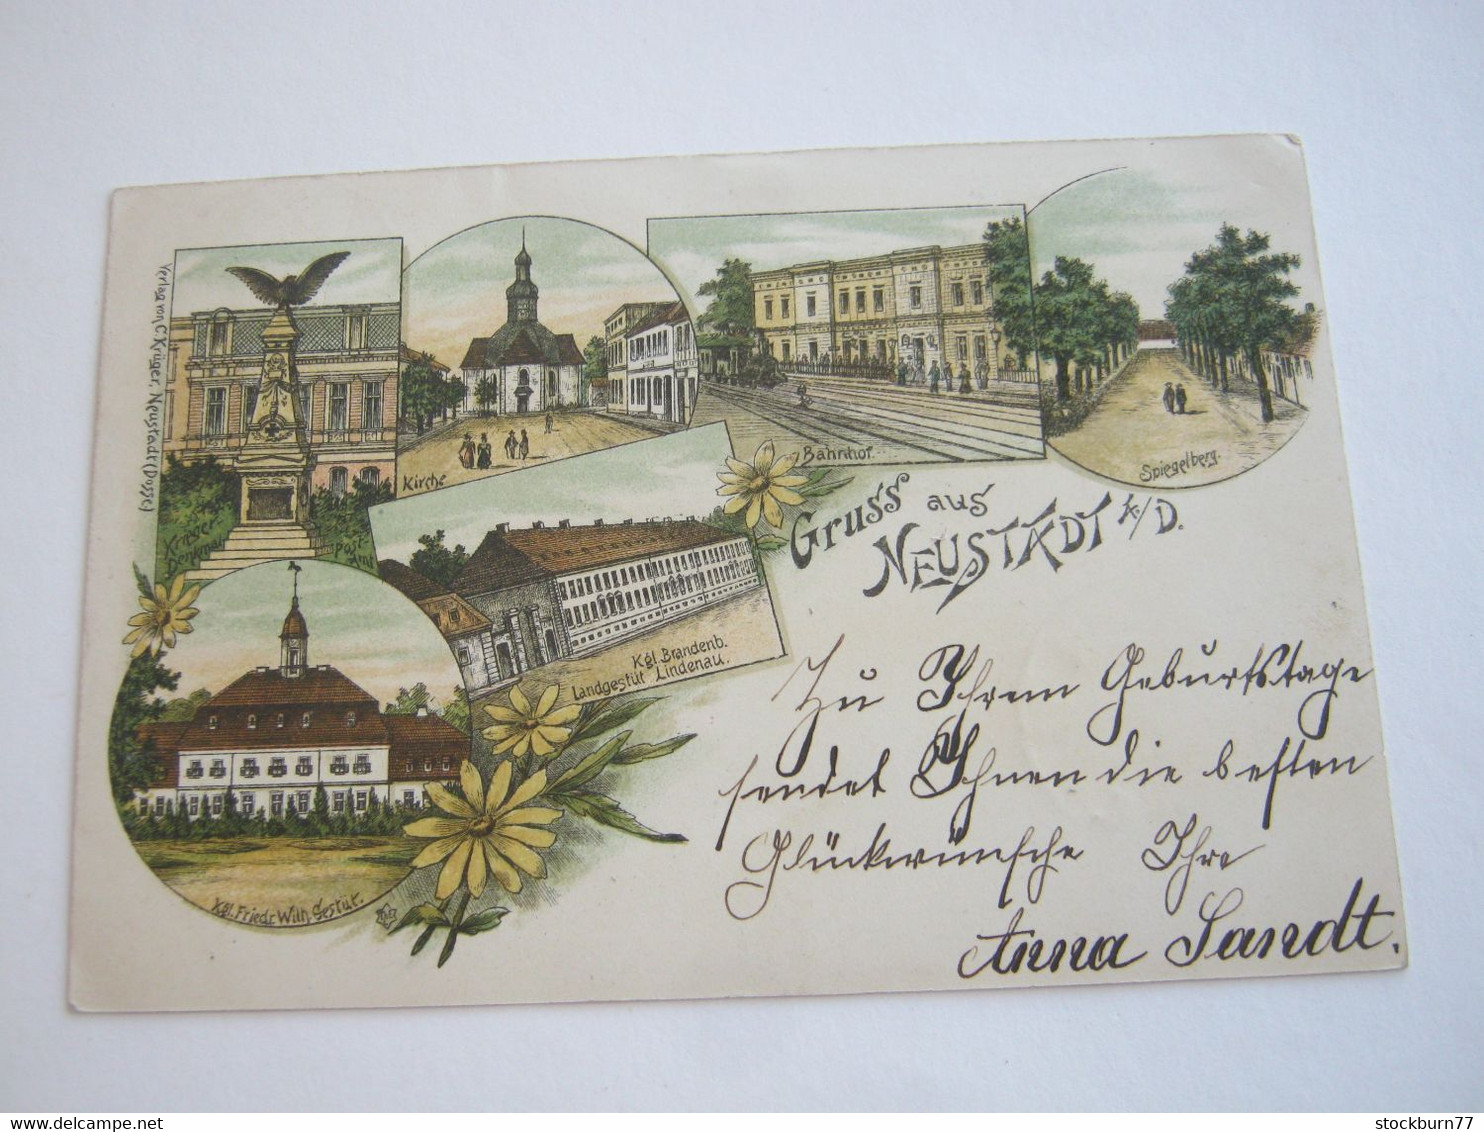 Verlag von C. Krüger, Neustadt (Dosse)
Krieger
Denkmal
Post
Amt
Kirche
Bahnhof
Spiegelberg.
Kgl. Brandenb.
Landgestüt Lindenau.
Kgl. Friedr. Wilh. Gestüt.
Gruss aus
NEUSTADT A/D.
Zu Ihrem Geburtstage
sendet Ihnen die besten
Glückwünsche Ihre
Anna Sandt.
delcampe.net
stockburn77